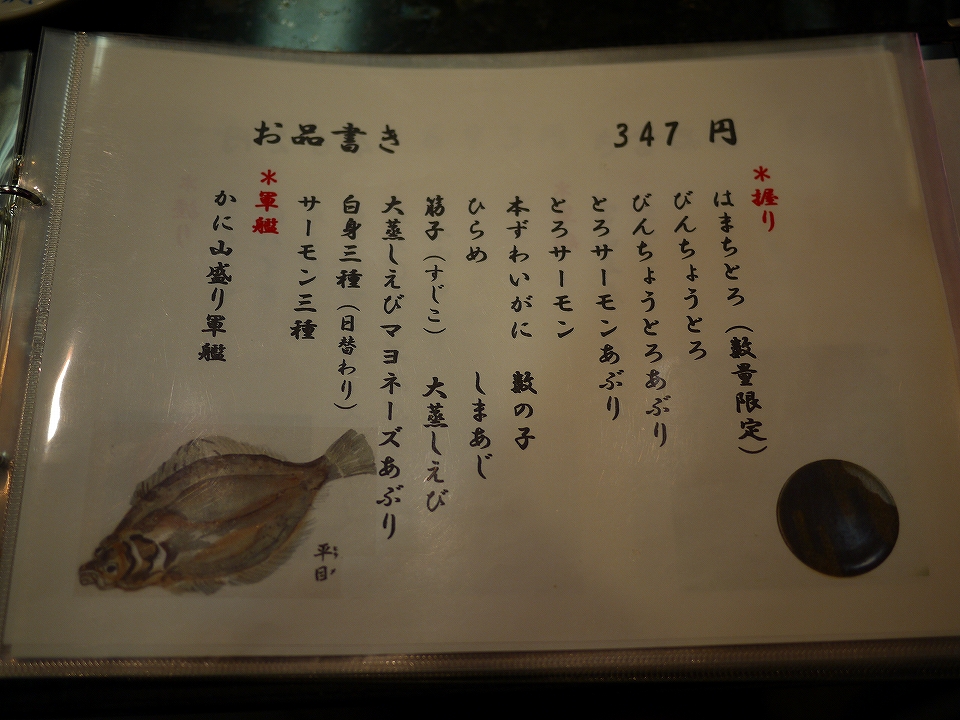 お品書き
347 円
*握り
はまちとろ（数量限定）
びんちょうとろ
びんちょうとろあぶり
とろサーモンあぶり
とろサーモン
本ずわいがに 数の子
ひらめ しまあじ
筋子（すじこ） 大蒸しえび
大蒸しえびマヨネーズあぶり
白身三種（日替わり）
サーモン三種
*軍艦
かに山盛り軍艦
平目